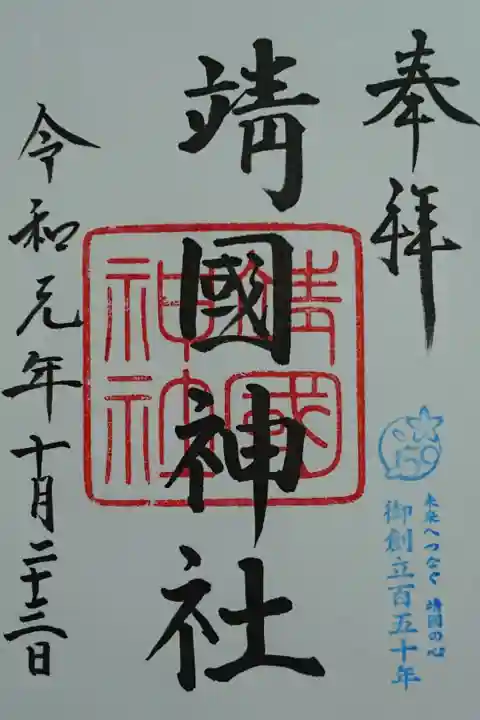 奉拝
150
未来へつなぐ 靖国の心
御創立百五十年
靖國神社
靖國神社
令和元年十月二十三日